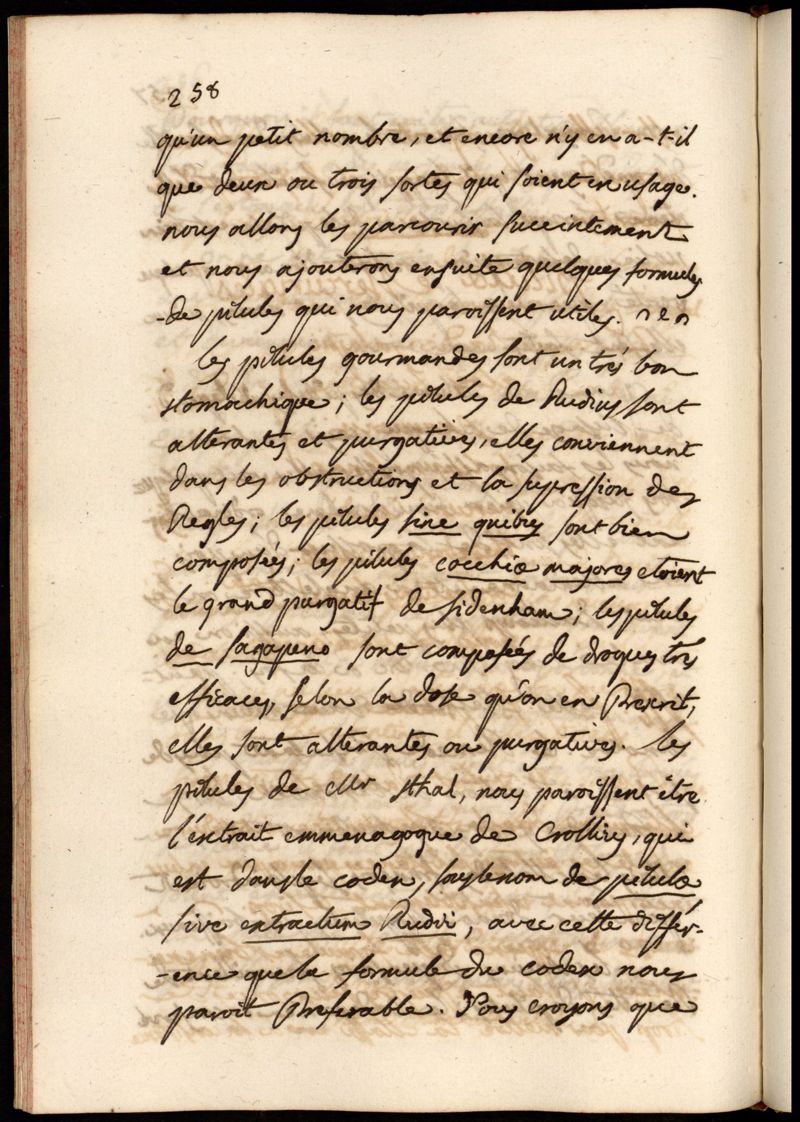 258
qu'un petit nombre, et encore n'y en a-t-il
que deux ou trois sortes qui soient en usage.
nous allons les parcourir succintement
et nous ajouterons ensuite quelques formules
-de pilules qui nous paroissent utiles.
les pilules gourmandes sont un trés bon
stomachique; les pilules de Rudius sont
alterantes et purgatives, elles conviennent
dans les obstructions et la supression des
Regles; les pilules sine quibus sont bien
composées; les pilules cocchiæ majores etoient
le grand purgatif de sidenham; les pilules
de sagapeno sont composées de drogues trés
efficaces, selon la dose qu'on en Prescrit,
elles sont alterantes ou purgatives. les
pilules de Mr sthal, nous paroissent être
l'extrait emmenagogue de Crollius, qui
est dans le codex, sous le nom de pilulæ
sive extractum Rudii, avec cette differ-
-ence que la formule du codex nous
paroit Preferable. Nous croyons que